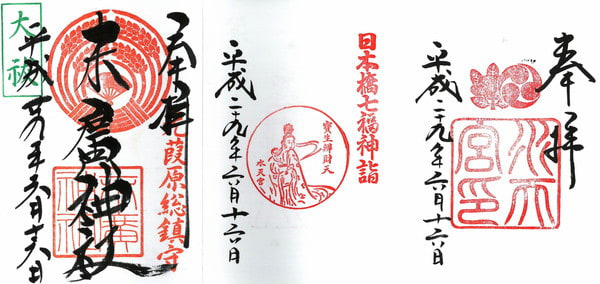 奉拝
水天宮印
平成二十九年六月十六日
日本橋七福神詣
寶生辨財天
水天宮
平成二十九年六月十六日
奉拝
葭原総鎮守
末廣神社
大祓
平成廿九年六月十六日